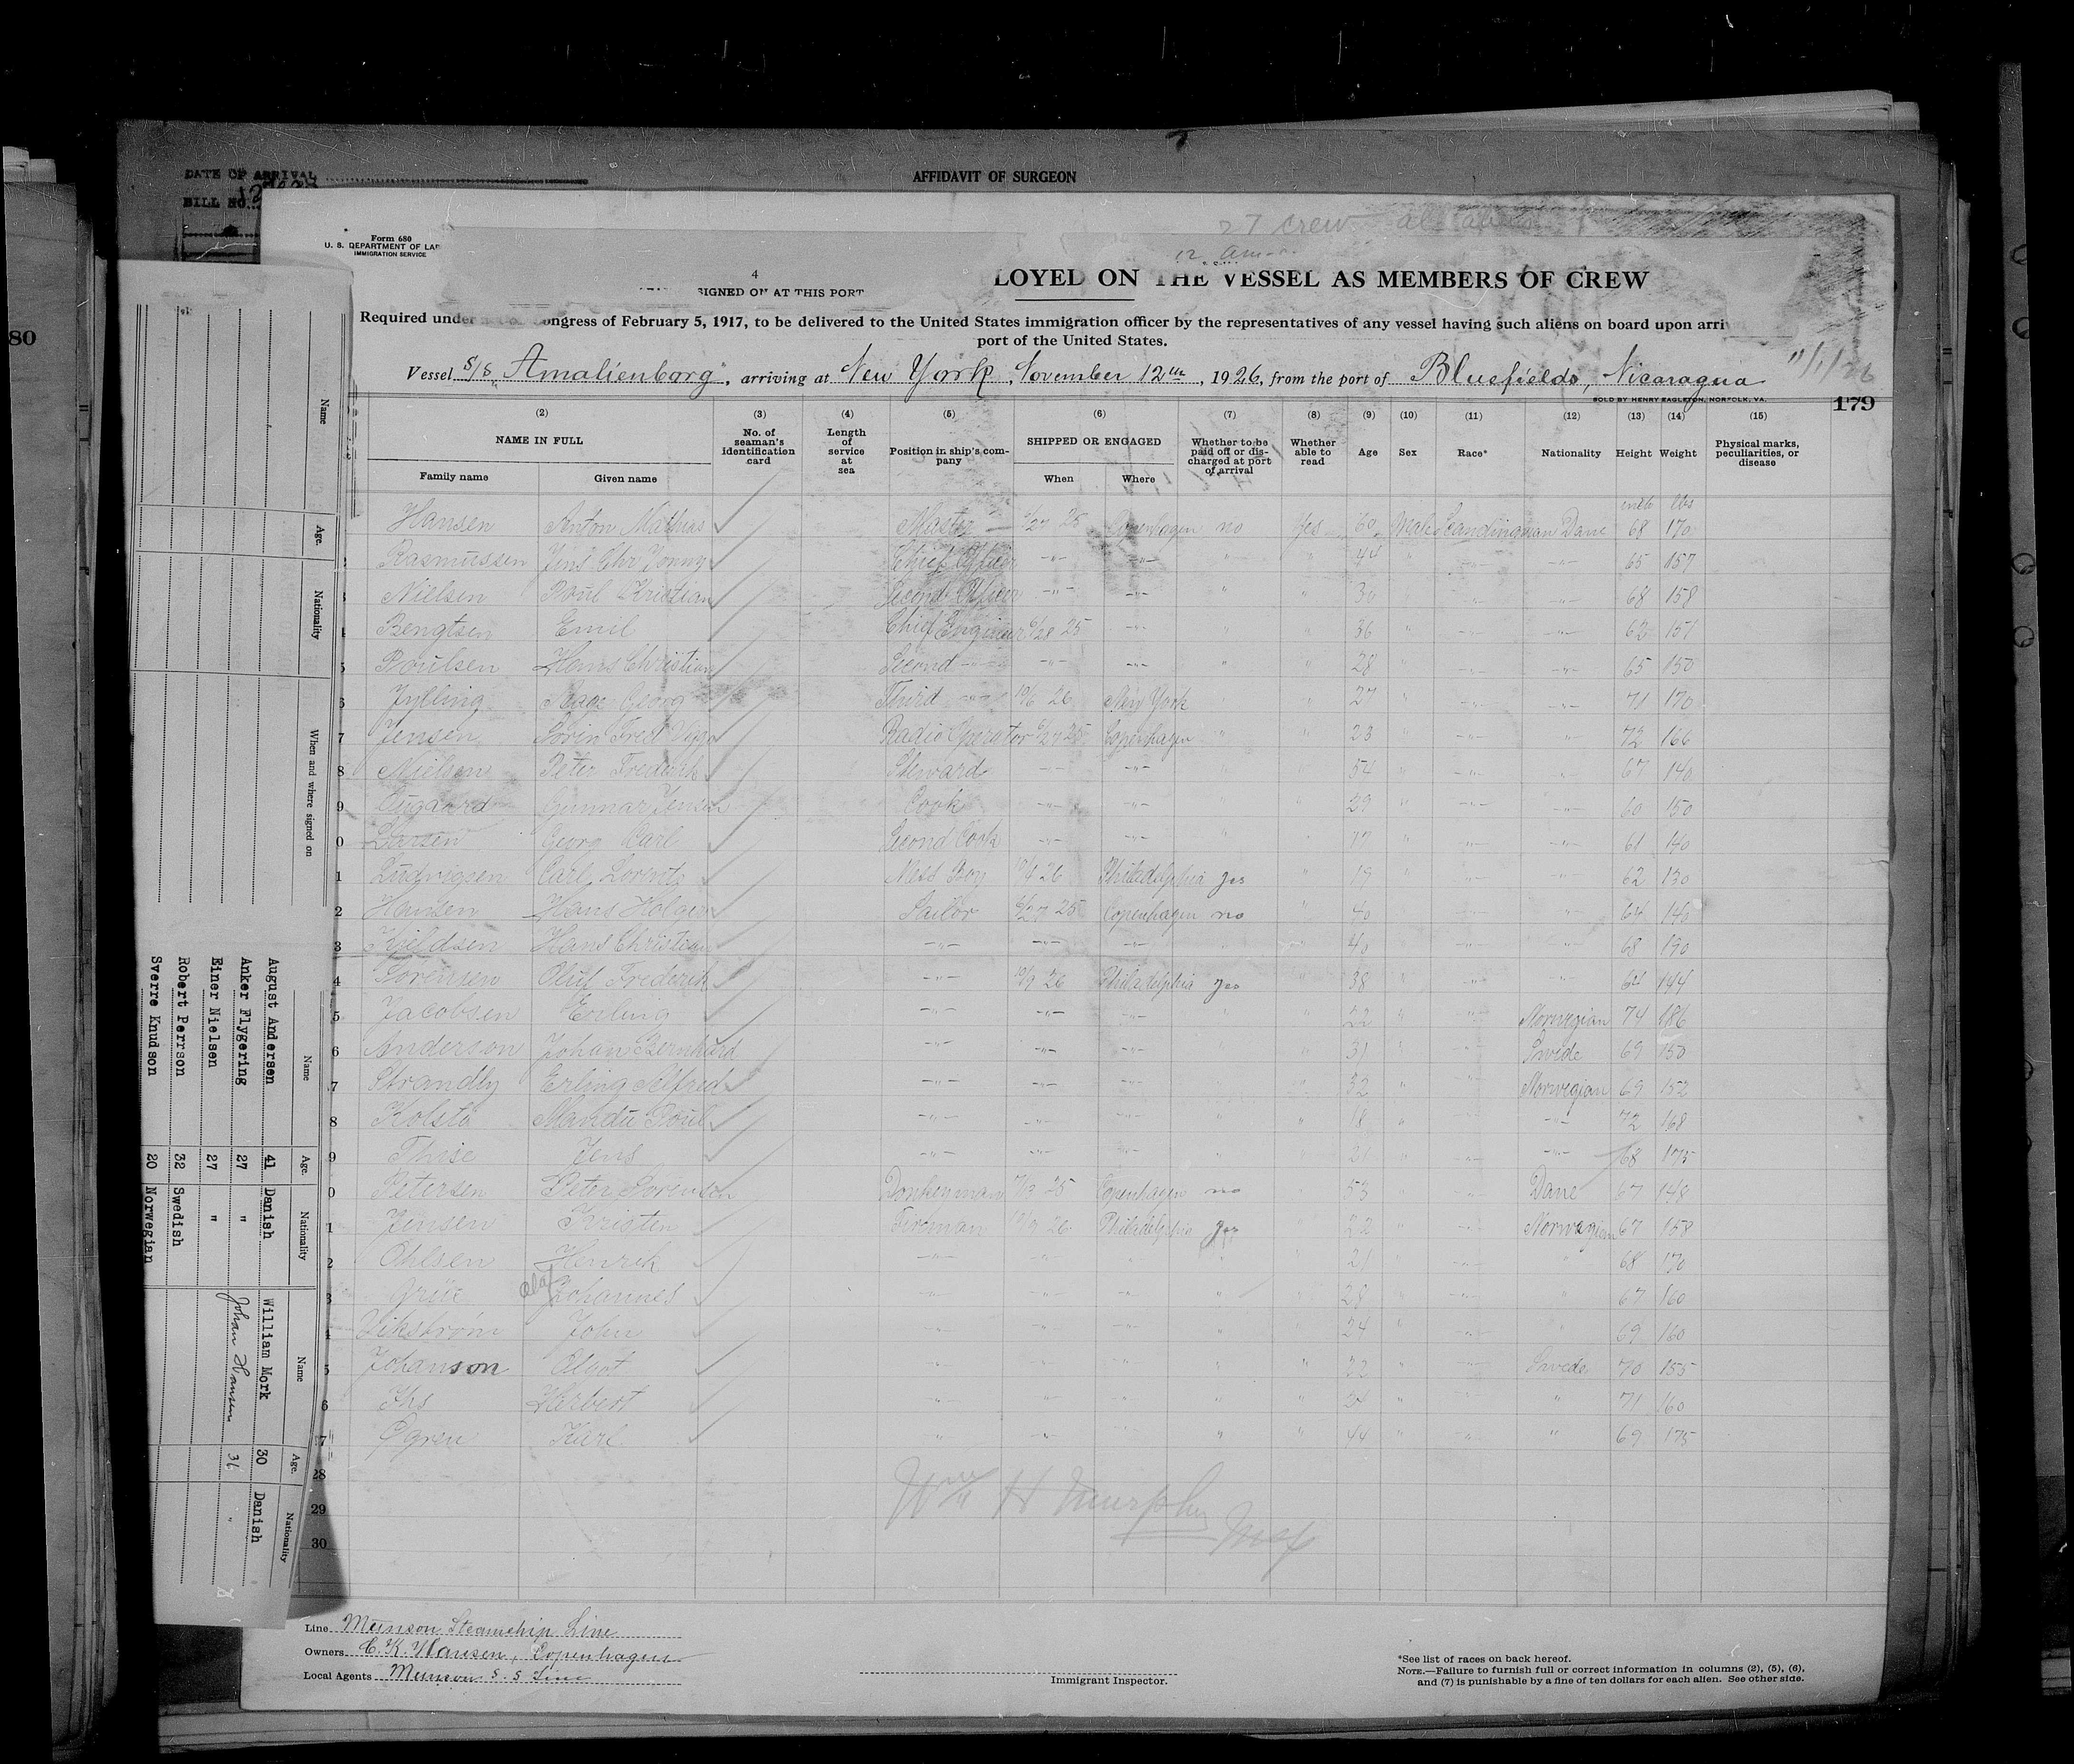 DATE OF ARRIVAL
BILL NO.
AFFIDAVIT OF SURGEON
80
27 crew all
12 am
Form 680
U. S. DEPARTMENT OF LAB
IMMIGRATION SERVICE
4
SIGNED ON AT THIS PORT
LOYED ON THE VESSEL AS MEMBERS OF CREW
Required under ongress of February 5, 1917, to be delivered to the United States immigration officer by the representatives of any vessel having such aliens on board upon arri
port of the United States.
Vessel S/S "Amalienborg", arriving at New York, November 12th, 1926, from the port of Bluefields, Nicaragua
SOLD BY HENRY EAGLETON, NORFOLK, VA.
179
(2) (3) (4) (5) (6) (7) (8) (9) (10) (11) (12) (13) (14) (15)
NAME IN FULL
Family name Given name
No. of seaman's identification card
Length of service at sea
Position in ship's company
SHIPPED OR ENGAGED
When Where
Whether to be paid off or discharged at port of arrival
Whether able to read
Age Sex Race* Nationality Height Weight
Physical marks, peculiarities, or disease
lbs
Hansen Anton Mathias Master 25 Copenhagen no Yes 60 Male Dane 68 170
Rasmussen Jens Chr Chief Officer -"- -"- " " 44 " -"- -"- 65 157
3 Nielsen Poul Kristian Second Officer -"- -"- " " 30 -"- -"- 68 158
4 Bengtsen Emil Chief Engineer 6/28 25 -"- " " 36 " -"- -"- 62 151
5 Poulsen Hans Christian Second -"- -"- -"- " " 28 " -"- -"- 65 150
6 Jylling Aage Georg Third -"- 10/6 26 New York " 27 " -"- -"- 71 170
7 Jensen Viggo Radio Operator 6/27 25 Copenhagen " " 23 " -"- -"- 72 166
8 Nielsen Peter Frederik Steward -"- -"- " " 54 " -"- -"- 67 140
9 Gunnar Jensen Cook -"- -"- " " 29 " -"- -"- 60 150
0 Larsen Georg Carl Second Cook -"- -"- " " 17 " -"- -"- 61 140
1 Ludvigsen Carl Mess Boy 26 Philadelphia yes " 19 " -"- -"- 62 130
2 Hansen Hans Holger Sailor 6/27 25 Copenhagen no " 40 " -"- -"- 64 140
3 Kjeldsen Hans Christian -"- -"- -"- " " 40 " -"- " 68 190
4 Sorensen Oluf Frederik -"- 10/9 26 Philadelphia yes " 38 " -"- " 64 144
5 Jacobsen Erling -"- -"- -"- " " 22 " -"- Norwegian 74 186
6 Anderson Johan Bernhard -"- -"- -"- " " 31 " -"- Swede 69 150
7 Strandly Erling Alfred -"- -"- -"- " " 32 " -"- Norwegian 69 152
8 Kolstö Poul -"- -"- -"- " " 18 " -"- -"- 72 168
9 Thise Jens -"- -"- -"- " " 21 " -"- -"- 68 175
0 Petersen Peter Sorensen Donkeyman 25 Copenhagen no " 53 " -"- Dane 67 148
1 Jensen Kristen Fireman 26 Philadelphia yes " 22 " -"- Norwegian 67 158
2 Ohlsen Henrik -"- -"- -"- " " 21 " -"- " 68 170
3 Olaf Johannes " -"- -"- " " 28 " -"- " 67 160
4 Vikström John " -"- -"- " " 24 " -"- " 69 160
5 Johanson Algot " " " " " 22 " -"- Swede 70 155
6 Herbert " " " " " 24 " " " 71 160
7 Ögren Karl " " " " " 44 " -"- " 69 175
28
29
30
Wm H Murphy
Line Munson Steamship Line
Owners C. K. Hansen, Copenhagen
Local Agents Munson S. S Line
Immigrant Inspector.
*See list of races on back hereof.
NOTE.—Failure to furnish full or correct information in columns (2), (5), (6),
and (7) is punishable by a fine of ten dollars for each alien. See other side.
Name Age. Nationality When and where signed on
Name Age. Nationality
August Andersen 41 Danish
Anker Flygering 27 "
Einer Nielsen 27 "
Robert Perrson 32 Swedish
Sverre Knudson 20 Norwegian
Name Age. Nationality
William Mork 30 Danish
Johan Hansen 31 "